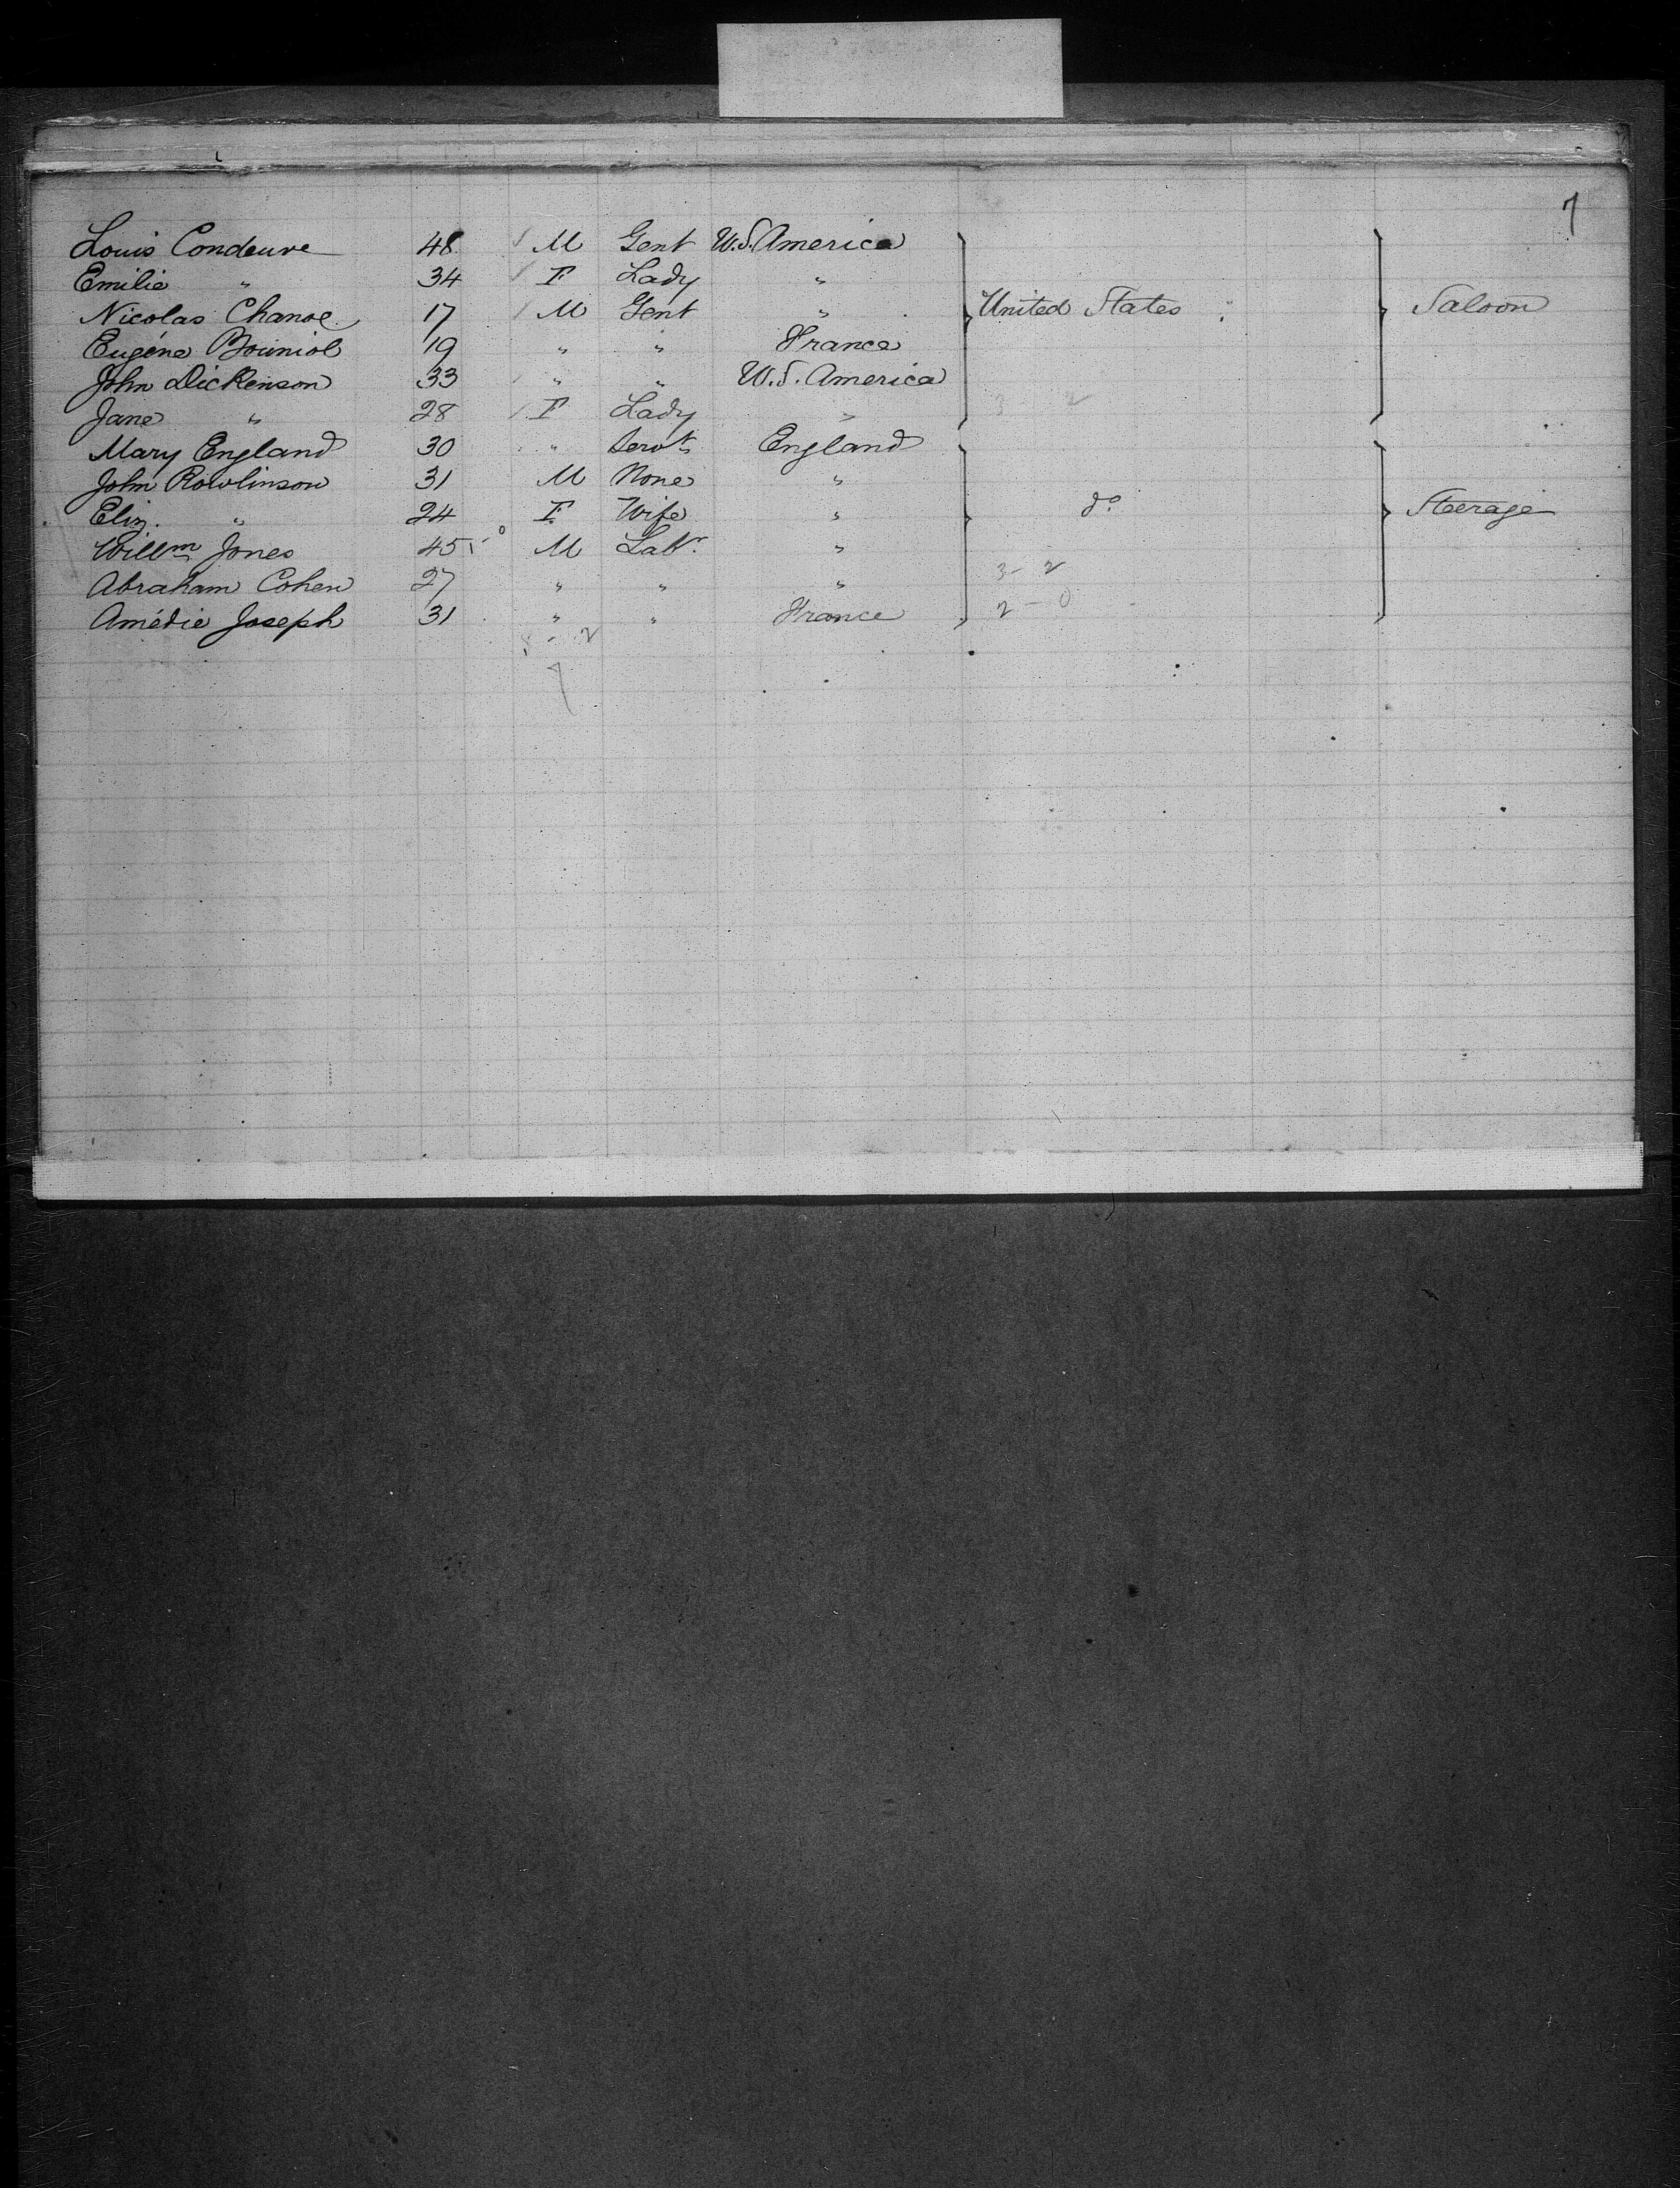 7
Louis Condeuve 48 M Gent U.S. America
Emilie " 34 F Lady "
Nicolas Chanoe 17 M Gent " United States Saloon
Eugéne Bouniol 19 " " France
John Dickenson 33 " " U.S. America
Jane " 28 F Lady " 3 - 2
Mary England 30 " Servt England
John Rowlinson 31 M None "
Eliz. " 24 F Wife " do Steerage
Willm Jones 45 M Labr "
Abraham Cohen 27 " " " 3 - 2
Amédie Joseph 31 " " France 2 - 0
8 - 2